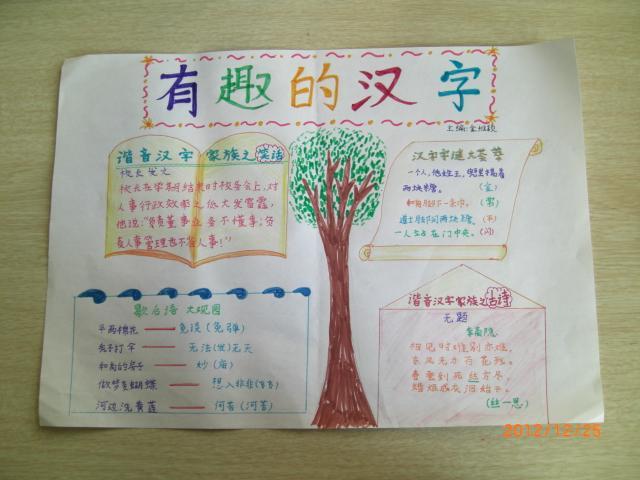 有趣的汉字
主编:金
谐音汉字 家族之笑话
校长发之
校长在学期结束时校务会上,对
人事行政效率之低大发雷霆,
他说:"负责董事业务不懂事,负
责人事管理也不省人事!"
汉字字谜大荟萃
一个人,他姓王,兜里揣着
两块糖。 (金)
通上脚
两块糖。 (平)
一人站在门中央。 (闪)
歇后语 大观园
免谈(免弹)
打伞 —— 无法(发)无天
和尚的房子 —— 妙(庙)
做梦变蝴蝶 —— 想入非非(飞飞)
河边洗黄莲 —— 何苦(河苦)
谐音汉字家族之古诗
无题
李商隐
相见时难别亦难,
东风无力百花残。
春蚕到死丝方尽,
蜡炬成灰泪始干。
(丝—思)
2012/12/25